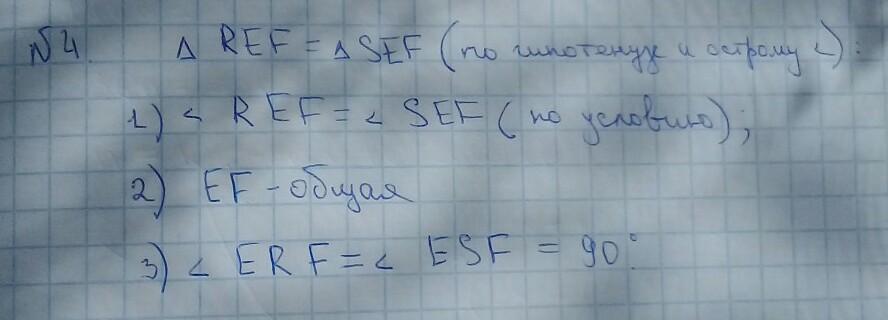 №4. Δ REF = Δ SEF (по гипотенузе и острому <):
1) < REF = < SEF (по условию);
2) EF - общая
3) < ERF = < ESF = 90°.